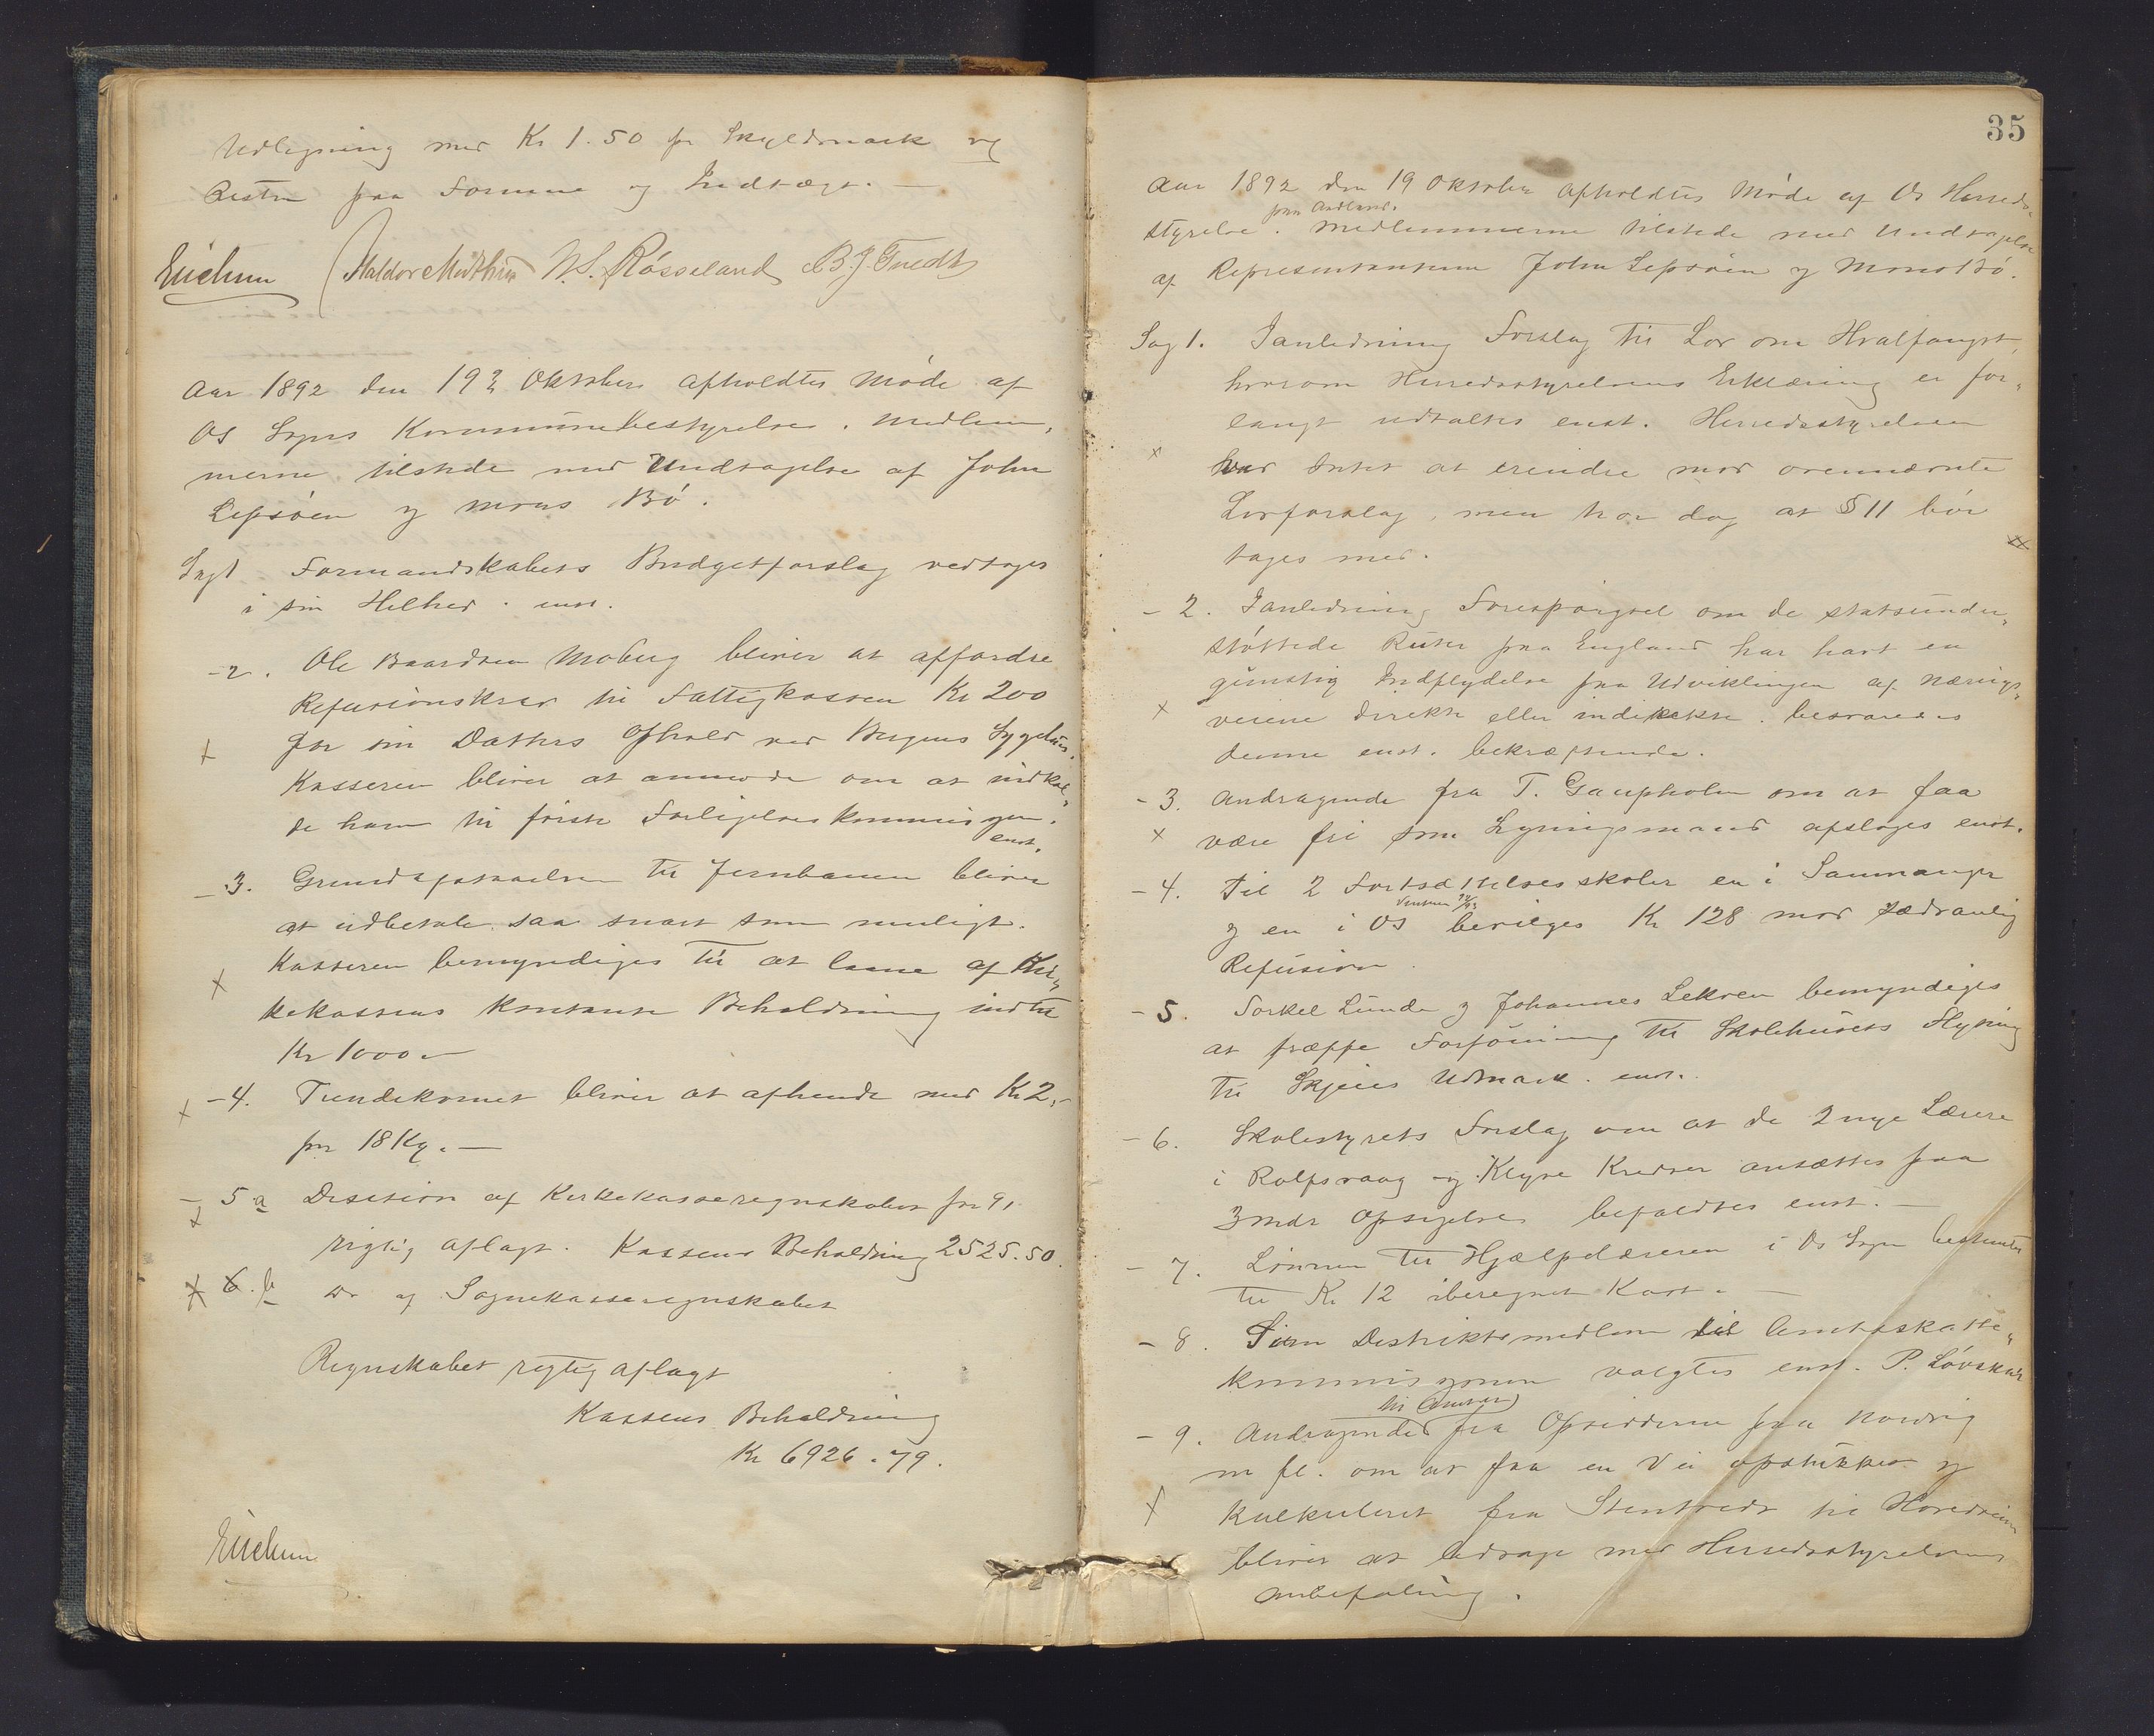 Udligning med Kr 1.50 pr Skyldmark og
Resten paa Formue og Indtægt. —
Haldor Midthun N. S. Røsseland B. J. Tuedt
Aar 1892 den 19de Oktober afholdtes Møde af
Os Sogns Kommunebestyrelse. Medlem,
merne tilstede med Undtagelse af John
Lepsøen og Mons Bø.
Sag 1 Formandskabets Budgetforslag vedtages
i sin Helhed. enst.
- 2. Ole Baardsen Moberg bliver at affordre
Refusionskrav til Fattigkassen Kr 200
for sin Datters Ophold ved Bergens Sygehus,
Kasseren bliver at anmode om at indkal,
de ham til første Forligelseskommisjon.
enst.
- 3. Grundafstaaelsen til Jernbanen bliver
at udbetale saa snart som muligt.
Kasseren bemyndiges til at laane af Kir,
kekassens kontante Beholdning indtil
Kr 1000.—
- 4. Tiendekornet bliver at afhende med Kr 2,-
pr 18 Kg. —
- 5 a Desision af Kirkekasseregnskabet for 91
rigtig aflagt. Kassens Beholdning 2525.50.
6. b Do af Sognekasseregnskabet
Regnskabet rigtig aflagt
Kassens Beholdning
Kr 6926.79.
35
Aar 1892 den 19 Oktober afholdtes Møde af Os Herreds-
paa Aadland.
styrelse. Medlemmerne tilstede med Undtagelse
af Representanterne John Lepsøen og Mons Bø.
Sag 1. Ianledning Forslag til Lov om Hvalfangst,
hvorom Herredsstyrelsens Erklæring er for,
langt udtaltes enst. Herredsstyrelsen
har Intet at erindre mod ovennævnte
Lovforslag, men tror dog at § 11 bør
tages med.
- 2. Ianledning Forespørgsel om de statsunder,
støttede Ruter paa England har havt en
günstig Indflydelse paa Udviklingen af Nærings,
veiene direkte eller indirekte. besvaredes
denne enst. bekræftende.
- 3. Andragende fra T. Gaupholm om at faa
være fri som Ligningsmand afslages enst.
- 4. Til 2 Fortsættelsesskoler en i Samnanger
Vinteren 92/93
og en i Os bevilges Kr 128 mod sædvanlig
Refusion.
- 5. Torkel Lunde og Johannes Lekven bemyndiges
at træffe Forføining til Skolehusets Flytning
til Skjeies Udmark. enst.
- 6. Skolestyrets Forslag om at de 2 nye Lærere
i Rolfsvaag og Klyve Kredser ansættes paa
3 mdr Opsigelse befaldtes enst. —
- 7. Lønnen til Hjælpelæreren i Os Sogn bestemtes
til Kr 12 iberegnet Kost. —
- 8. Som Distriktsmedlem til Amtsskatte,
kommisjonen valgtes enst. P. Løvskar
til Amtet
- 9. Andragendet fra Opsidderne paa Nordvig
m fl. om at faa en Vei opstukket og
kalkuleret fra Stentvedt til Hovedveien
bliver at ledsage med Herredsstyrelsens
Anbefaling.